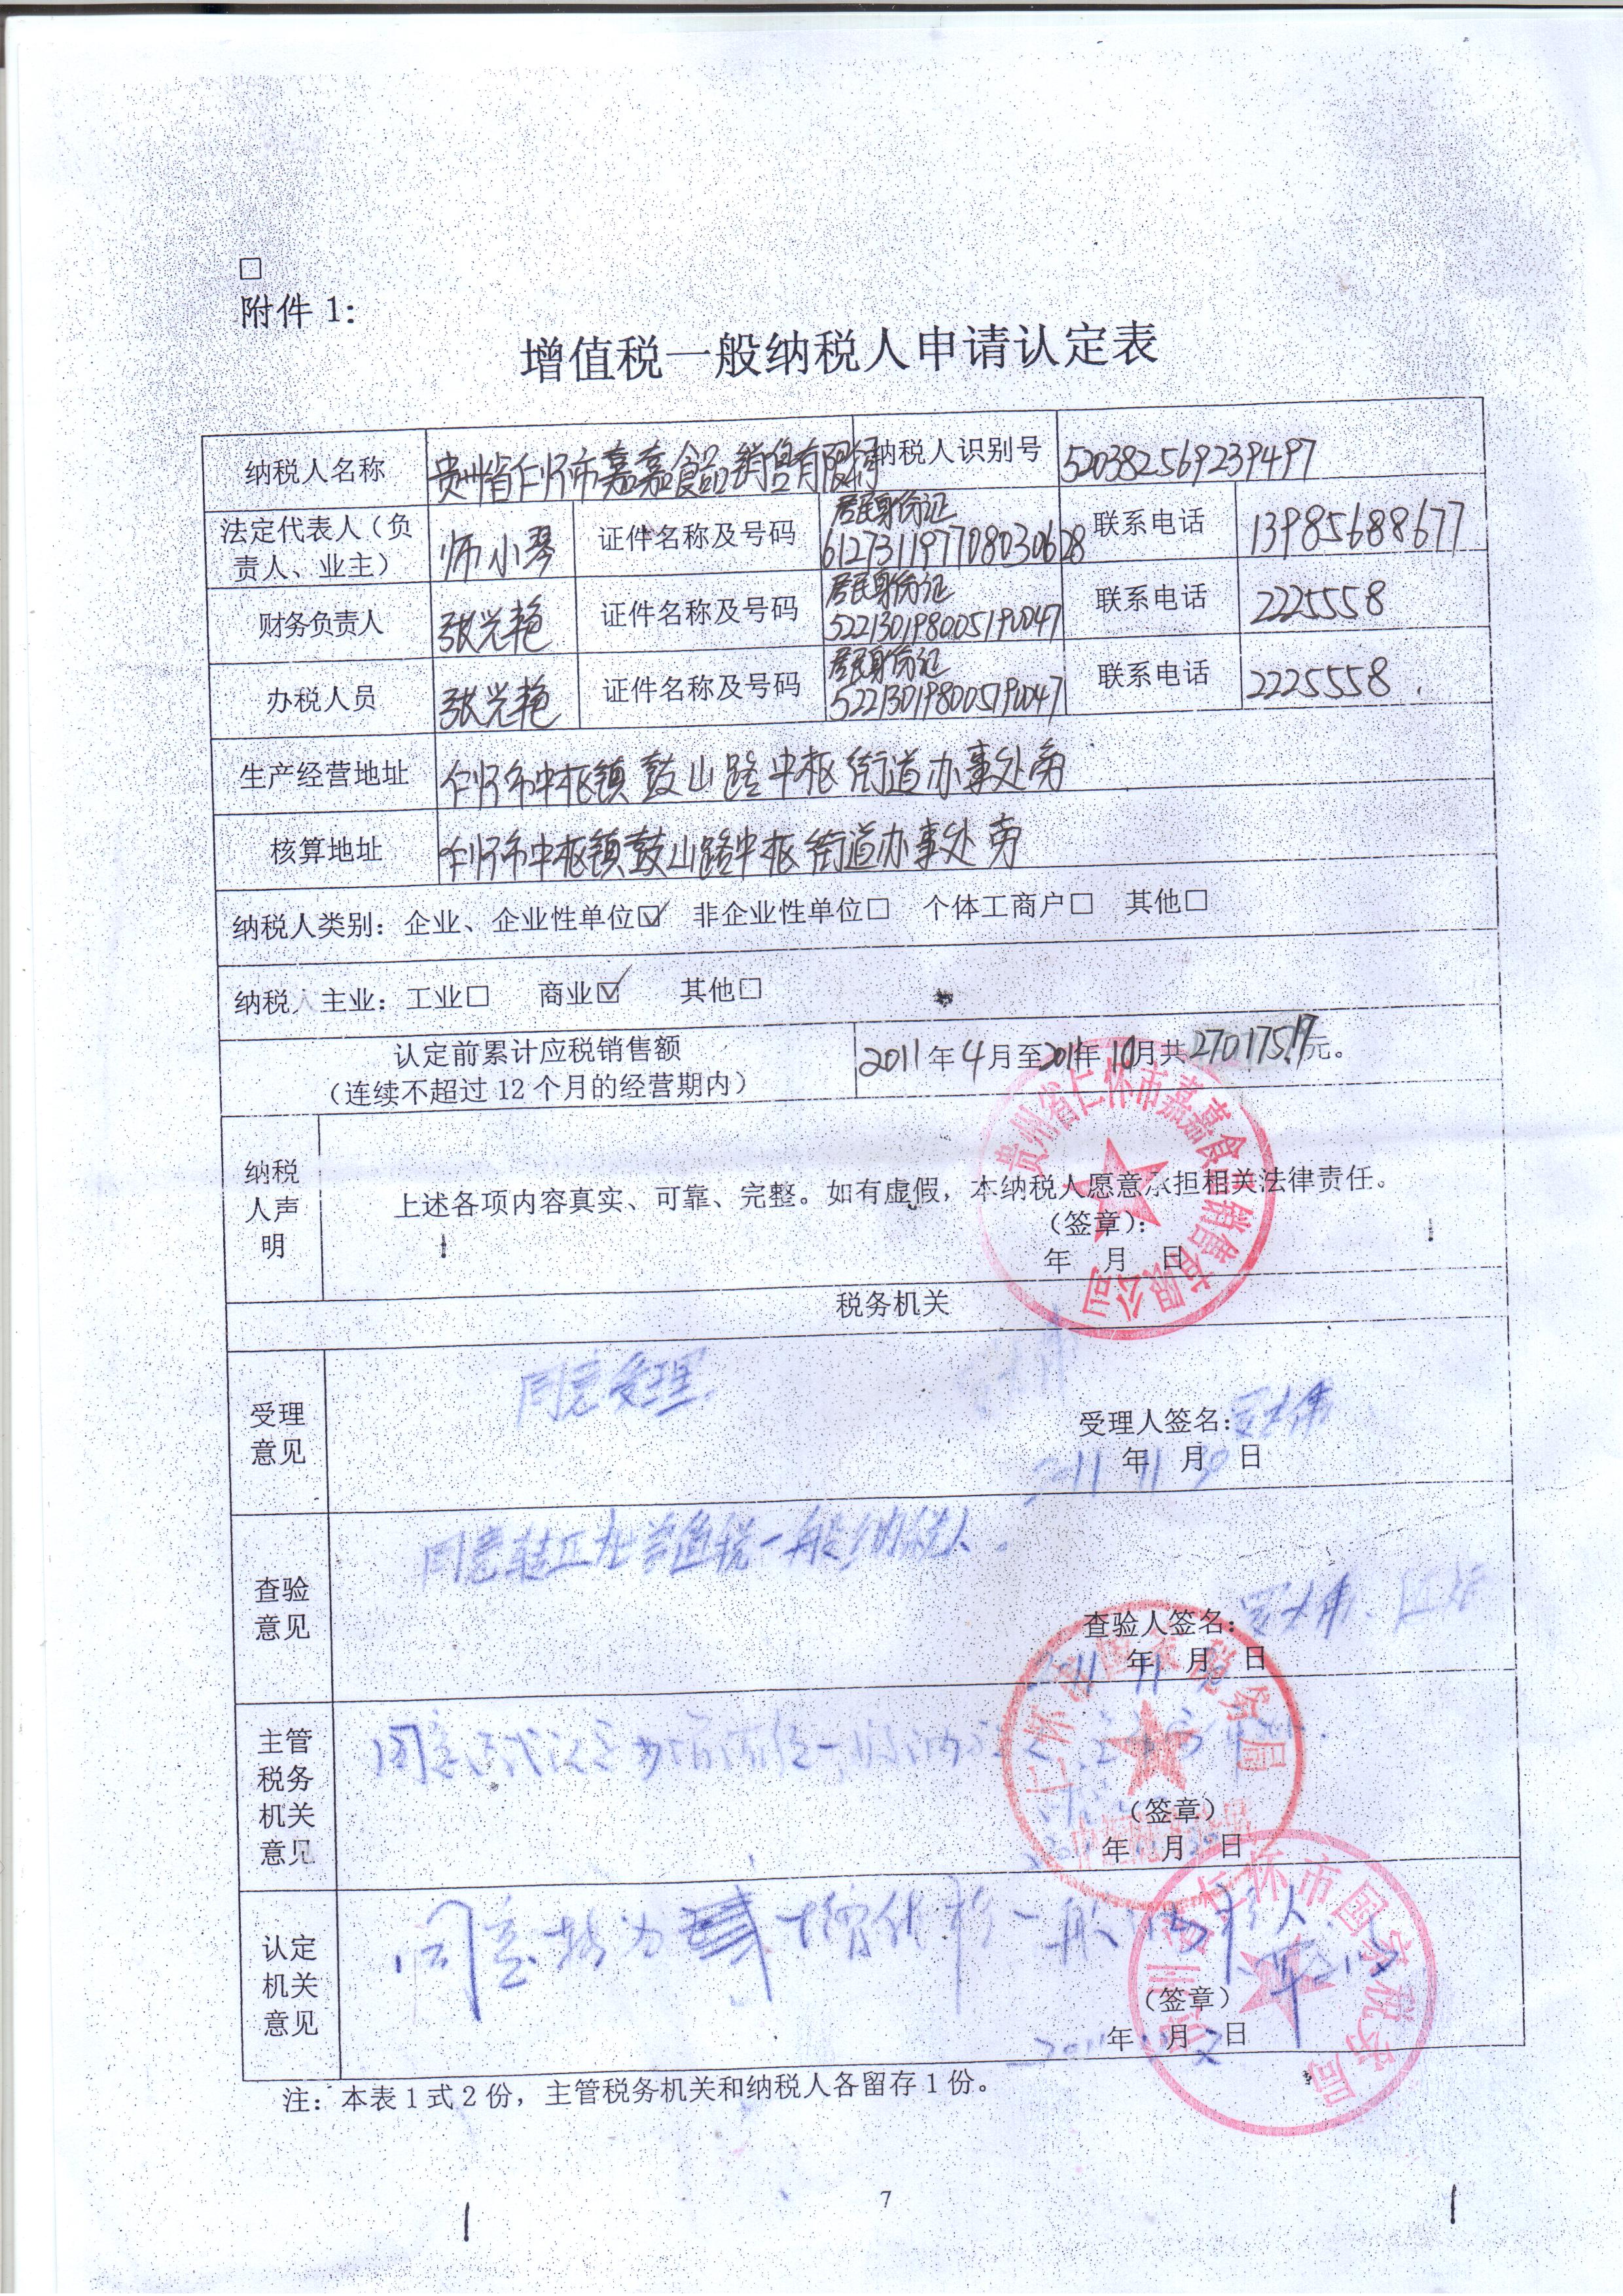 附件 1：
增值税一般纳税人申请认定表
纳税人名称 贵州省仁怀市嘉嘉食品销售有限公司 纳税人识别号 520382569239497
法定代表人（负责人、业主） 师小琴 证件名称及号码 居民身份证 612731197708030628 联系电话 13985688677
财务负责人 张兴艳 证件名称及号码 居民身份证 联系电话 2225558
办税人员 张兴艳 证件名称及号码 居民身份证 联系电话 2225558
生产经营地址 仁怀市中枢镇鼓山路中枢街道办事处旁
核算地址 仁怀市中枢镇鼓山路中枢街道办事处旁
纳税人类别：企业、企业性单位☑ 非企业性单位□ 个体工商户□ 其他□
纳税人主业：工业□ 商业☑ 其他□
认定前累计应税销售额
（连续不超过 12 个月的经营期内）
2011年4月至2011年10月共270175.17元。
纳税人声明
上述各项内容真实、可靠、完整。如有虚假，本纳税人愿意承担相关法律责任。
（签章）：
年 月 日
贵州省仁怀市嘉嘉食品销售有限公司
税务机关
受理意见
同意受理.
受理人签名：
2011年11月30日
查验意见
同意转正为普通税一般纳税人.
查验人签名：
2011年11月30日
主管税务机关意见
同意
（签章）
年 月 日
仁怀市国家税务局
认定机关意见
同意转为增值税一般纳税人
（签章）
2011年 月2日
贵州省仁怀市国家税务局
注：本表 1 式 2 份，主管税务机关和纳税人各留存 1 份。
7